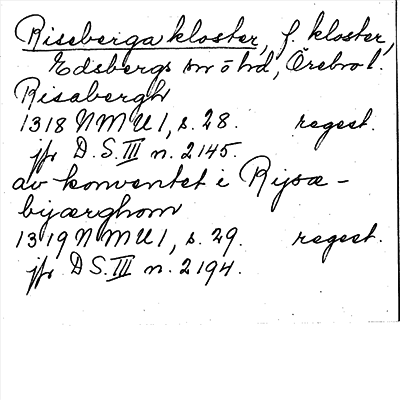 Riseberga kloster, f. kloster,
Edsbergs sn o hd, Örebro l.
Risabergh
1318 NMU 1, s. 28. regest.
jfr D.S. III n. 2145.
av konventet i Rysæ-
bijærghom
1319 NMU 1, s. 29. regest.
jfr D.S. III n. 2194.